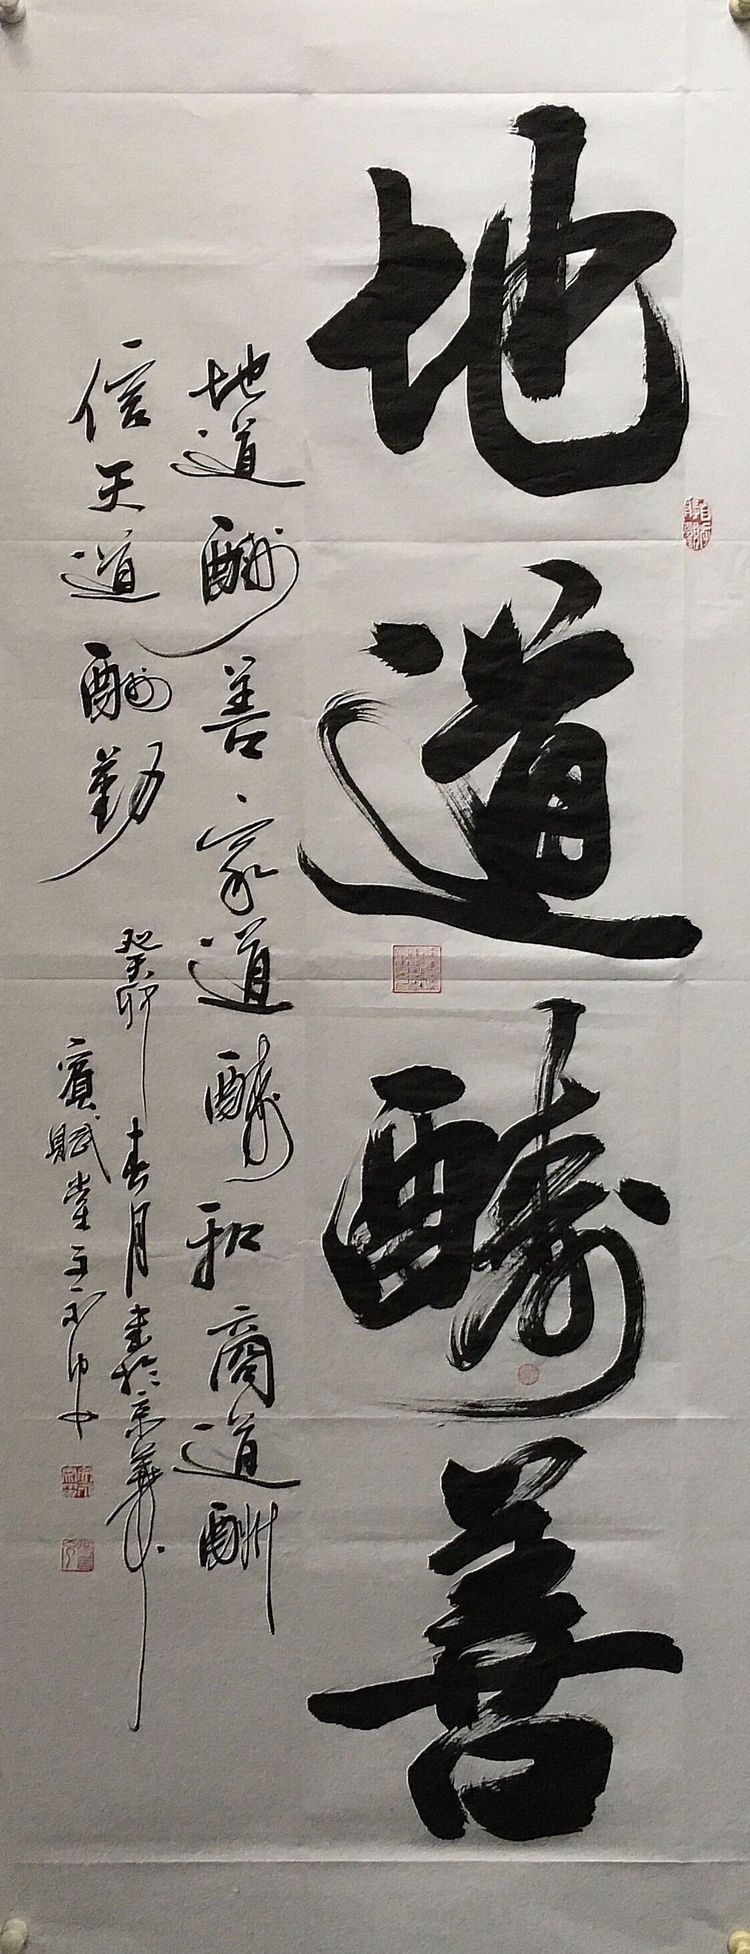 地道醻善
地道醻善家道醻和商道酬
信天道醻勤
癸卯春月書於京華
賓賦堂主